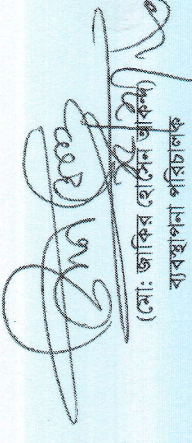 (মো: জাকির হোসেন আকন্দ)
ব্যবস্থাপনা পরিচালক